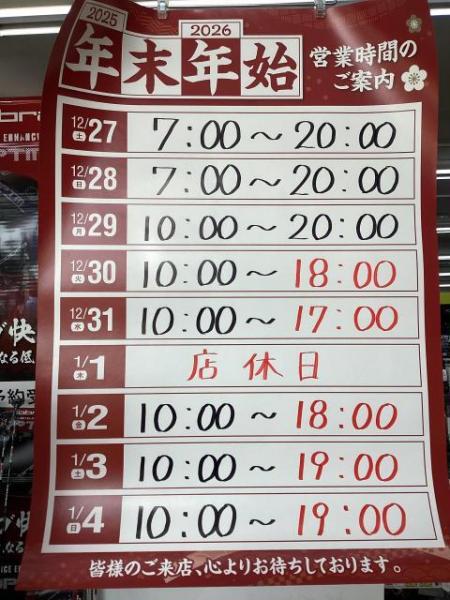 2025
2026
年末年始
営業時間の
ご案内
12/27 土 7:00～20:00
12/28 日 7:00～20:00
12/29 月 10:00～20:00
12/30 火 10:00～18:00
12/31 水 10:00～17:00
1/1 木 店休日
1/2 金 10:00～18:00
1/3 土 10:00～19:00
1/4 日 10:00～19:00
皆様のご来店、心よりお待ちしております。